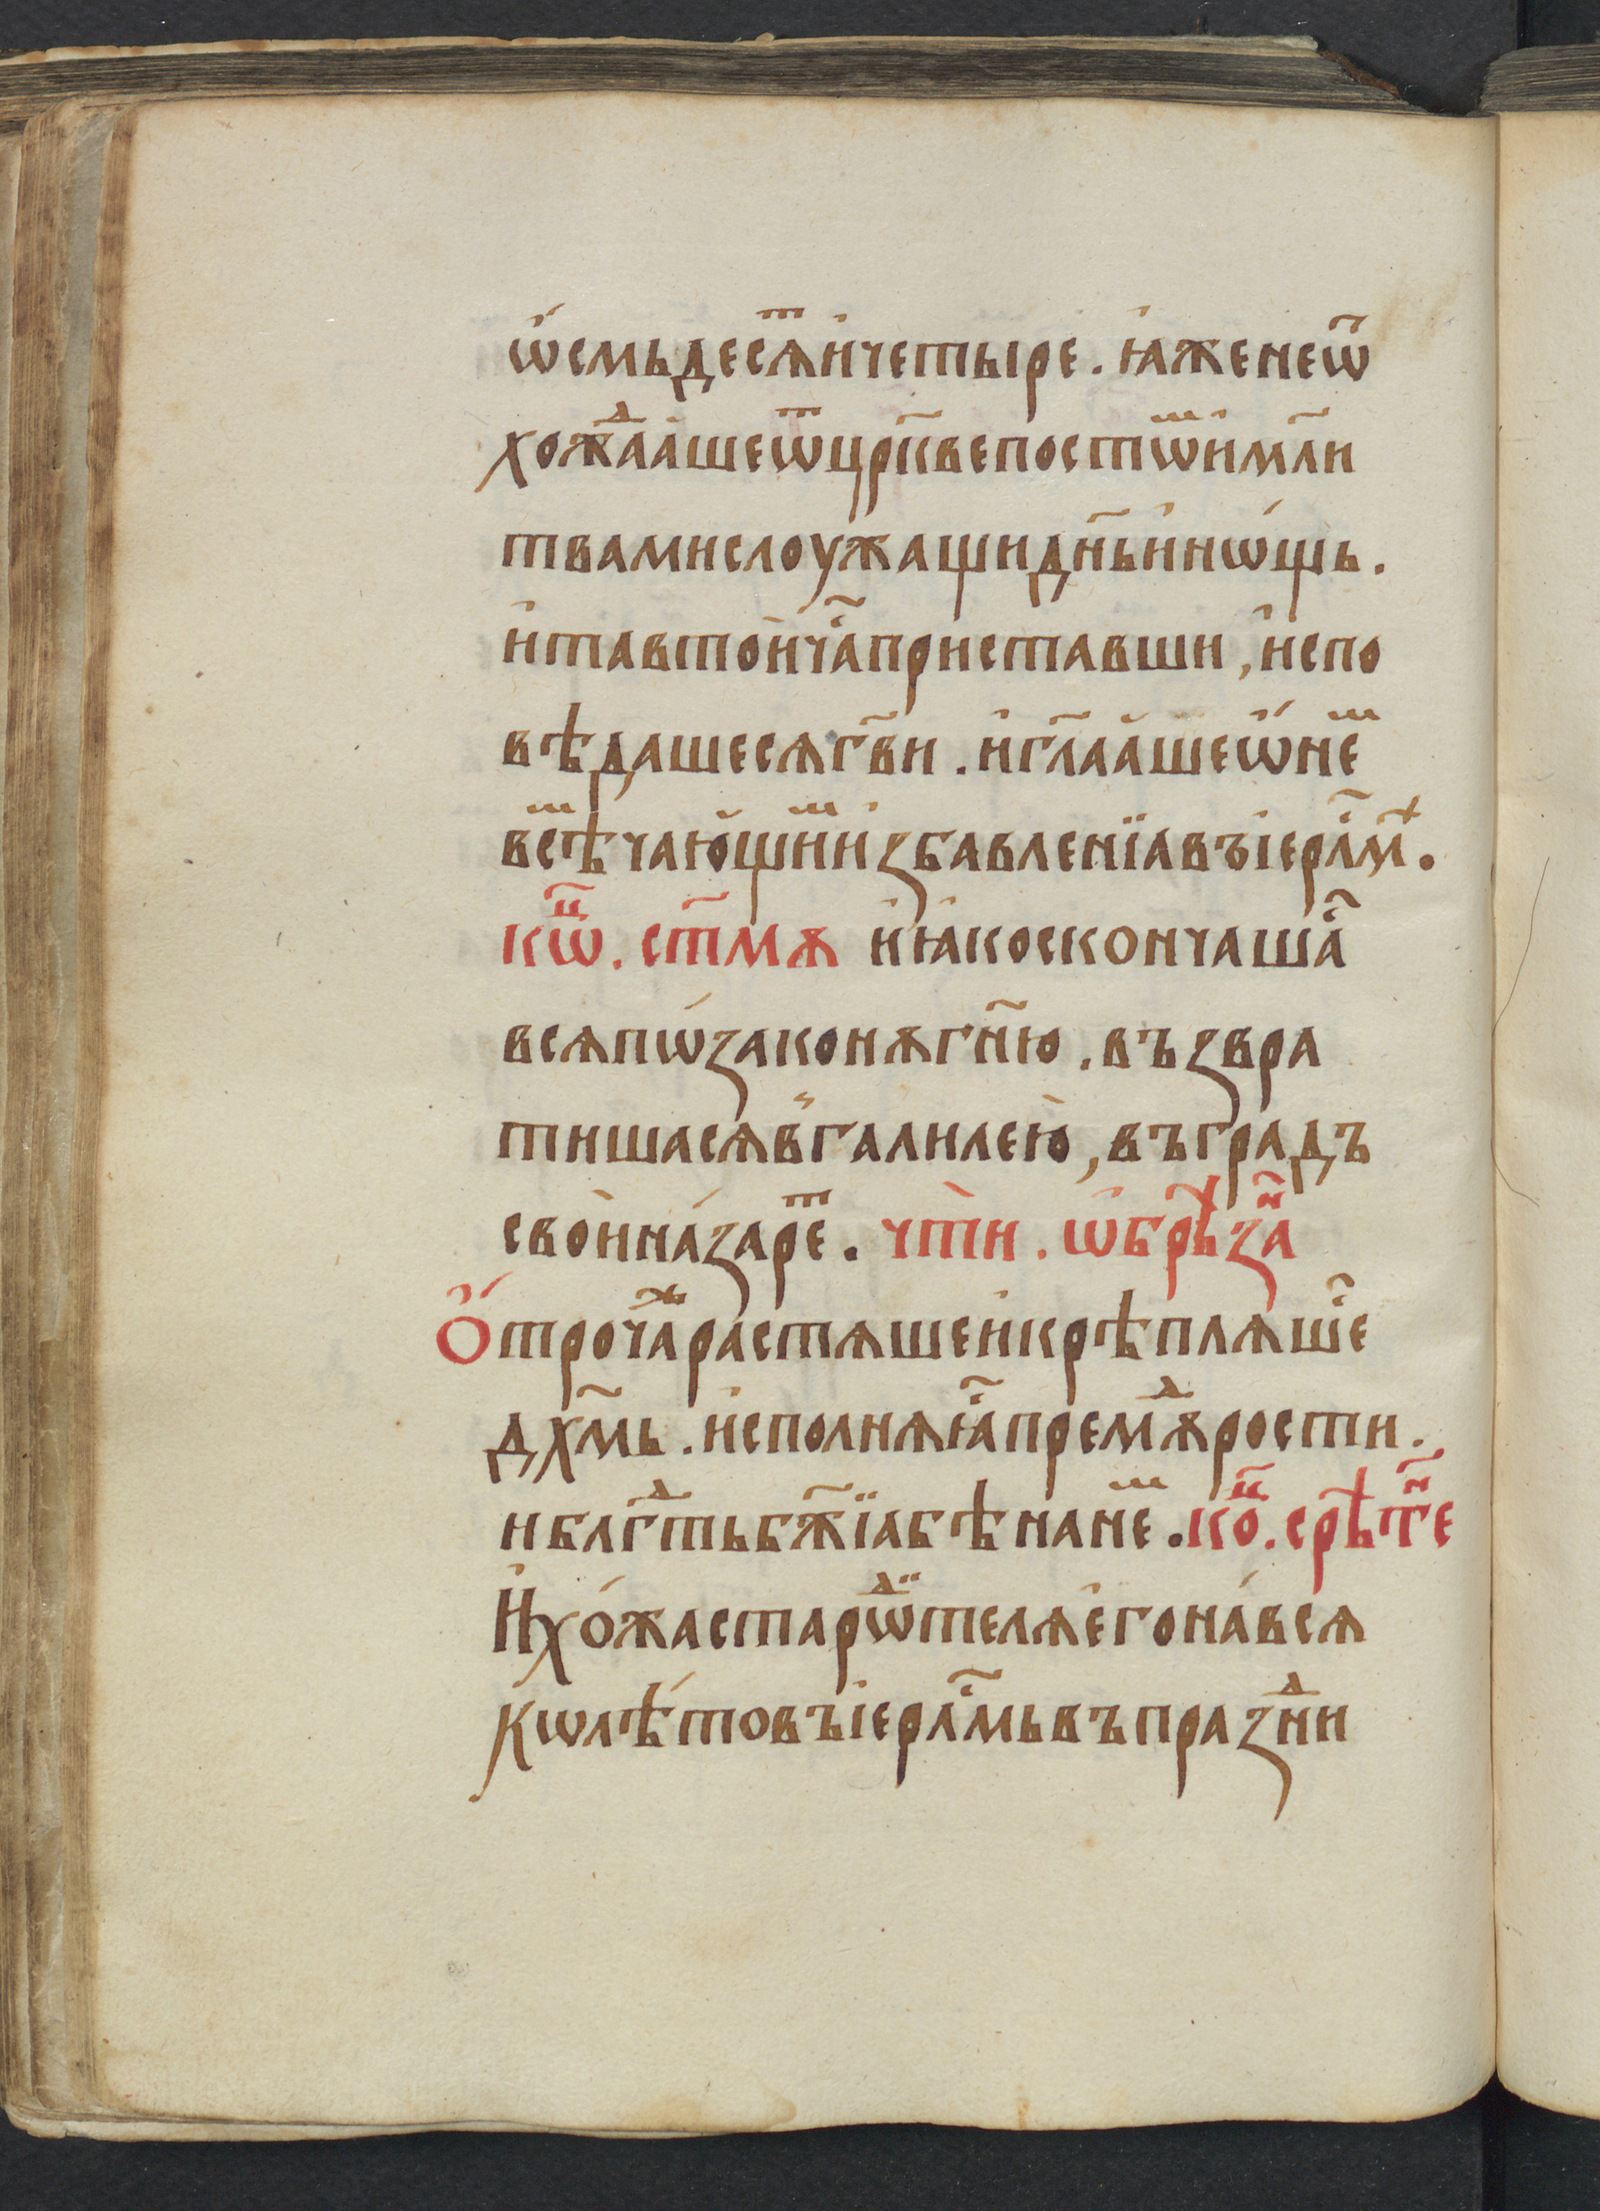 ѡ҆́смьдесѧⷮи҆четыре . ꙗ҆женеѿ
хожⷣаа҆шеѿцр҃кве постѡⷨи҆мл҃и
твамислоужащидн҃ьи҆нѡ́щь .
и҆тавто̀и҆ча҃съприставши , и҆спо
вѣдашесѧгв҃и . и҆гл҃аа҆шеѡ҆́неⷨ
всѣⷨчаю҆щиⷨи҆збавленїавъі҆ерл҃мⷯ .
кѡⷰ҇ . ст҃мѫ и҆ꙗ҆коскончашаⷭ҇
всѧпѡ́законѫгн҃ю . възвра
тишасѧв̾галилею̀ , въградъ
свои̇на́зареⷮ . чтѝ . ѡ҆брѣзаⷩ҇
О҆́трочаⷤрастѧшеи҆крѣплѧшеⷭ҇
дх҃мь . и҆сполнѧꙗ҆ⷭ҇премѫⷣрости .
иблгⷣтьбж҃їабѣнанеⷨ . коⷰ҇ . срѣтⷩ҇е
И҆хо́жастарѡⷣтелѧе҆гона́всѧ
кѡлѣ́товъі҆ерл҃мьвъпразⷣни